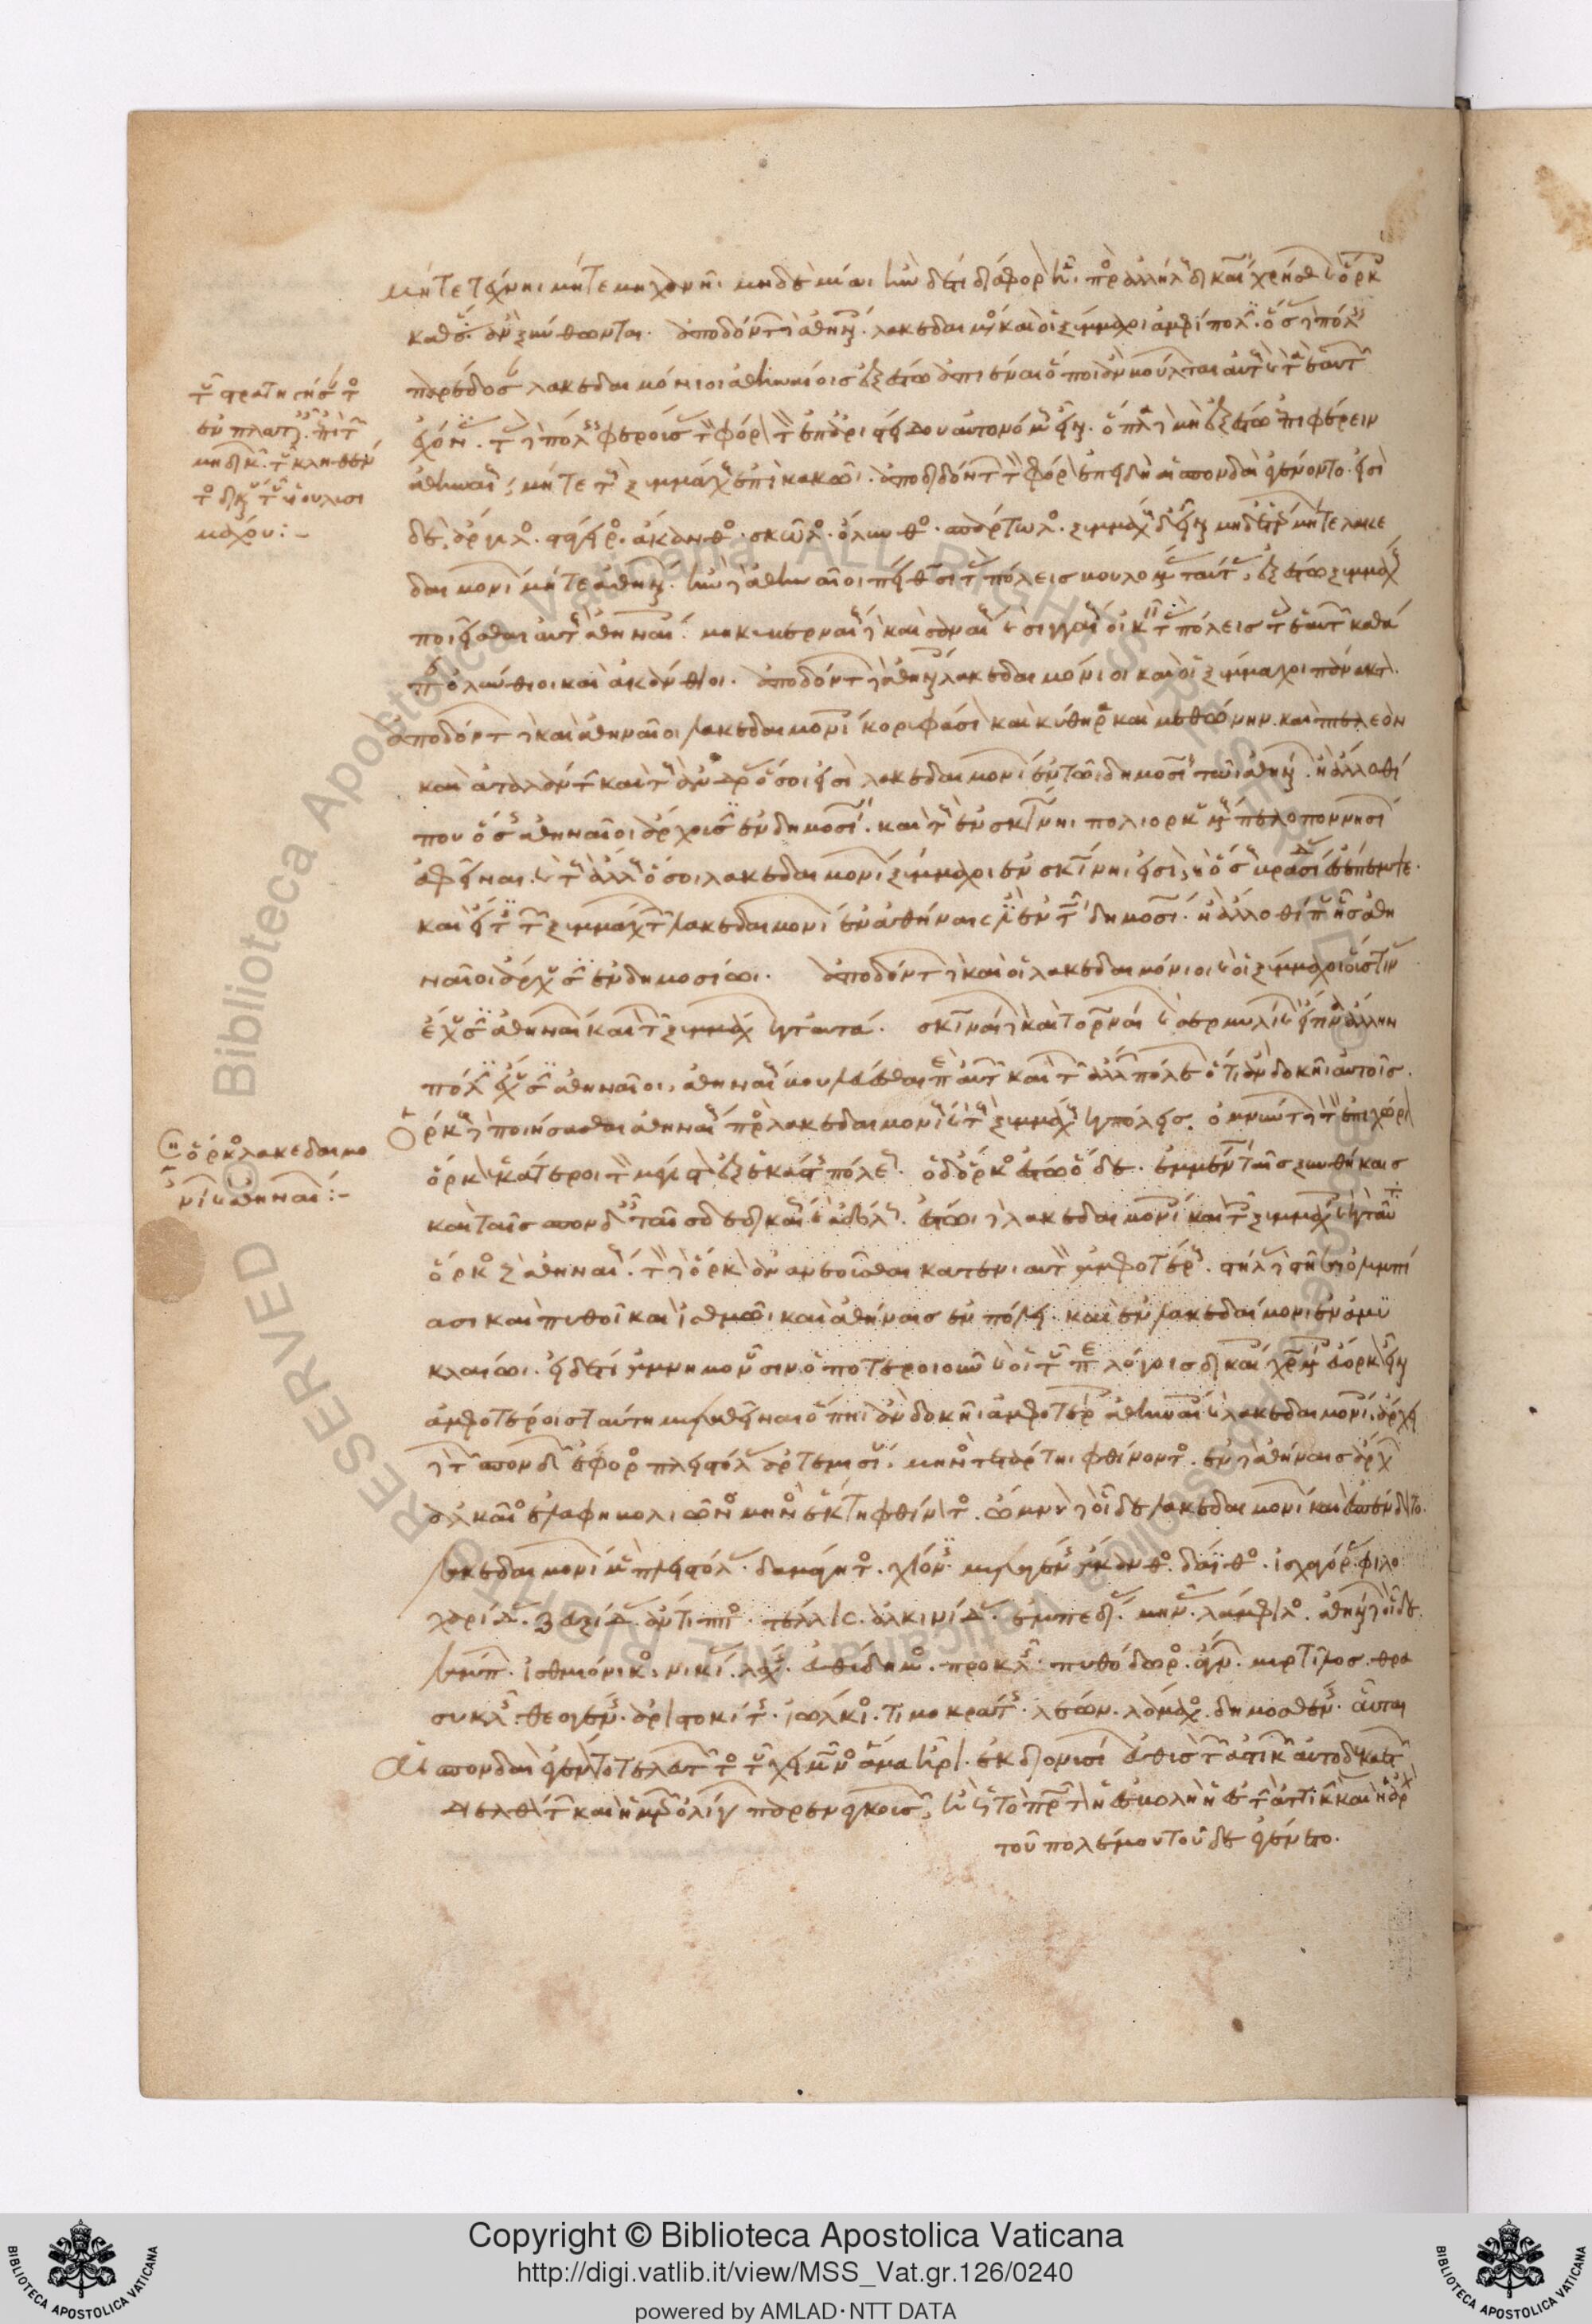 μήτε τέχνηι μήτε μηχανῆι μηδεμίαι. ἢν δέ τι διάφορον ἦι πρὸς ἀλλήλους, δικαίωι χρήσθων καὶ ὅρκοις
καθότι ἂν ξυνθῶνται. ἀποδόντων δὲ ἀθηναίοις λακεδαιμόνιοι καὶ οἱ ξύμμαχοι ἀμφίπολιν. ὅσας δὲ πόλεις
παρέδοσαν λακεδαιμόνιοι ἀθηναίοις ἐξέστω ἀπιέναι ὅποι ἂν βούλωνται αὐτοὺς καὶ τὰ ἑαυτῶν
ἔχοντας. τὰς δὲ πόλεις φερούσας τὸν φόρον τὸν ἐπ' ἀριστείδου αὐτονόμους εἶναι. ὅπλα δὲ μὴ ἐξέστω ἐπιφέρειν
ἀθηναίους μήτε τοὺς ξυμμάχους ἐπὶ κακῶι. ἀποδιδόντων τὸν φόρον ἐπειδὴ αἱ σπονδαὶ ἐγένοντο. εἰσὶ
δέ, ἄργιλος. στάγειρος. ἄκανθος. σκῶλος. ὄλυνθος. σπάρτωλος. ξυμμάχους δ' εἶναι μηδετέρων μήτε λακε
δαιμονίων μήτε ἀθηναίων. ἢν δὲ ἀθηναῖοι πείθωσι τὰς πόλεις βουλομένας ταύτας, ἐξέστω ξυμμάχους
ποιεῖσθαι αὐτοὺς ἀθηναίοις. μηκυβερναίους δὲ καὶ σαναίους καὶ σιγγαίους οἰκεῖν τὰς πόλεις τὰς ἑαυτῶν καθά
περ ὀλύνθιοι καὶ ἀκάνθιοι. ἀποδόντων δὲ ἀθηναίοις λακεδαιμόνιοι καὶ οἱ ξύμμαχοι πάνακτον.
ἀποδόντων δὲ καὶ ἀθηναῖοι λακεδαιμονίοις κορυφάσιον καὶ κύθηρα καὶ μεθώνην. καὶ πτελεὸν
καὶ ἀταλάντην καὶ τοὺς ἄνδρας ὅσοι εἰσὶ λακεδαιμονίων ἐν τῶι δημοσίωι τῶι ἀθηναίων. ἢ ἄλλοθί
που ὅσης ἀθηναῖοι ἄρχουσιν ἐν δημοσίωι. καὶ τοὺς ἐν σκιώνηι πολιορκουμένους πελοποννησίων
ἀφεῖναι. καὶ τοὺς ἄλλους ὅσοι λακεδαιμονίων ξύμμαχοι ἐν σκιώνηι εἰσὶ, καὶ ὅσους βρασίδας ἐσέπεμψε.
καὶ εἴ τις τῶν ξυμμάχων τῶν λακεδαιμονίων ἐν ἀθήναις ἐστὶν ἐν τῶι δημοσίωι. ἢ ἄλλοθί που ἧς ἀθη
ναῖοι ἄρχουσιν ἐν δημοσίωι. ἀποδόντων δὲ καὶ οἱ λακεδαιμόνιοι καὶ οἱ ξύμμαχοι οὕστινας
ἔχουσιν ἀθηναίων καὶ τῶν ξυμμάχων κατὰ ταυτά. σκιωναίων δὲ καὶ τορωναίων καὶ σερμυλίων καὶ εἴ τινα ἄλλην
πόλιν ἔχουσιν ἀθηναῖοι, ἀθηναίους βουλεύεσθαι περὶ αὐτῶν καὶ τῶν ἄλλων πόλεων ὅτι ἂν δοκῆι αὐτοῖς.
ὅρκους δὲ ποιήσασθαι ἀθηναίους πρὸς λακεδαιμονίους καὶ τοὺς ξυμμάχους κατὰ πόλεις. ὀμνύντων δὲ τὸν ἐπιχώριον
ὅρκον ἑκάτεροι τὸν μέγιστον ἐξ ἑκάστης πόλεως. ὁ δ' ὅρκος ἔστω ὅδε. ἐμμενῶ ταῖς ξυνθήκαις
καὶ ταῖς σπονδαῖς ταῖσδε δικαίως καὶ ἀδόλως. ἔστω δὲ λακεδαιμονίοις καὶ τοῖς ξυμμάχοις κατὰ ταυτὰ
ὅρκος πρὸς ἀθηναίους. τὸν δὲ ὅρκον ἀνανεοῦσθαι κατ' ἐνιαυτὸν ἀμφοτέρους. στήλας δὲ στῆσαι ὀλυμπί
ασι καὶ πυθοῖ καὶ ἰσθμῶι καὶ ἀθήναις ἐν πόλει. καὶ ἐν λακεδαίμονι ἐν ἀμυ
κλαίωι. εἰ δέ τι ἀμνημονοῦσιν ὁποτεροιοῦν καὶ ὅτου περὶ λόγοις δικαίοις χρωμένοις εὔορκον εἶναι
ἀμφοτέροις ταύτηι μεταθεῖναι ὅπηι ἂν δοκῆι ἀμφοτέροις ἀθηναίοις καὶ λακεδαιμονίοις. ἄρχει
δὲ τῶν σπονδῶν ἔφορος πλειστόλας ἀρτεμισίου μηνὸς τετάρτηι φθίνοντος. ἐν δὲ ἀθήναις ἄρχων
ἀλκαῖος ἐλαφηβολιῶνος μηνὸς ἕκτηι φθίνοντος. ὤμνυον δὲ οἵδε λακεδαιμονίων καὶ ἐσπένδοντο.
λακεδαιμονίων μὲν πλειστόλας. δαμάγητος. χίονις. μεταγένης. ἄκανθος. δάιθος. ἰσχαγόρας. φιλο
χαρίδας. ζευξίδας. ἄντιππος. τέλλις. ἀλκινίδας. ἐμπεδίας. μηνᾶς. λάμφιλος. ἀθηναίων δὲ οἵδε.
λάμπων. ἰσθμιόνικος. νικίας. λάχης. εὐθύδημος. προκλῆς. πυθόδωρος. ἅγνων. μυρτίλος. θρα
συκλῆς. θεογένης. ἀριστοκίτης. ἰώλκιος. τιμοκράτης. λέων. λάμαχος. δημοσθένης. αὗται
αἱ σπονδαὶ ἐγένοντο τελευτῶντος τοῦ χειμῶνος ἅμα ἦρι. ἐκ διονυσίων εὐθὺς τῶν ἀστικῶν αὐτόδεκα ἐτῶν
διελθόντων καὶ ἡμερῶν ὀλίγων παρενεγκουσῶν, ἢ ὡς τὸ πρῶτον ἡ ἐσβολὴ ἡ ἐς τὴν ἀττικὴν καὶ ἡ ἀρχὴ
τοῦ πολέμου τοῦδε ἐγένετο.
τοῦ στρατηγήσαντος
ἐν πλαταιαῖς ἐπὶ τῶν
μηδικῶν τοῦ κληθέν
τος δικαίου τοῦ λυσι
μάχου:-
ὁ ὅρκος λακεδαιμο
νίων καὶ ἀθηναίων:-
Copyright © Biblioteca Apostolica Vaticana
http://digi.vatlib.it/view/MSS_Vat.gr.126/0240
powered by AMLAD·NTT DATA
BIBLIOTECA APOSTOLICA VATICANA
BIBLIOTECA APOSTOLICA VATICANA